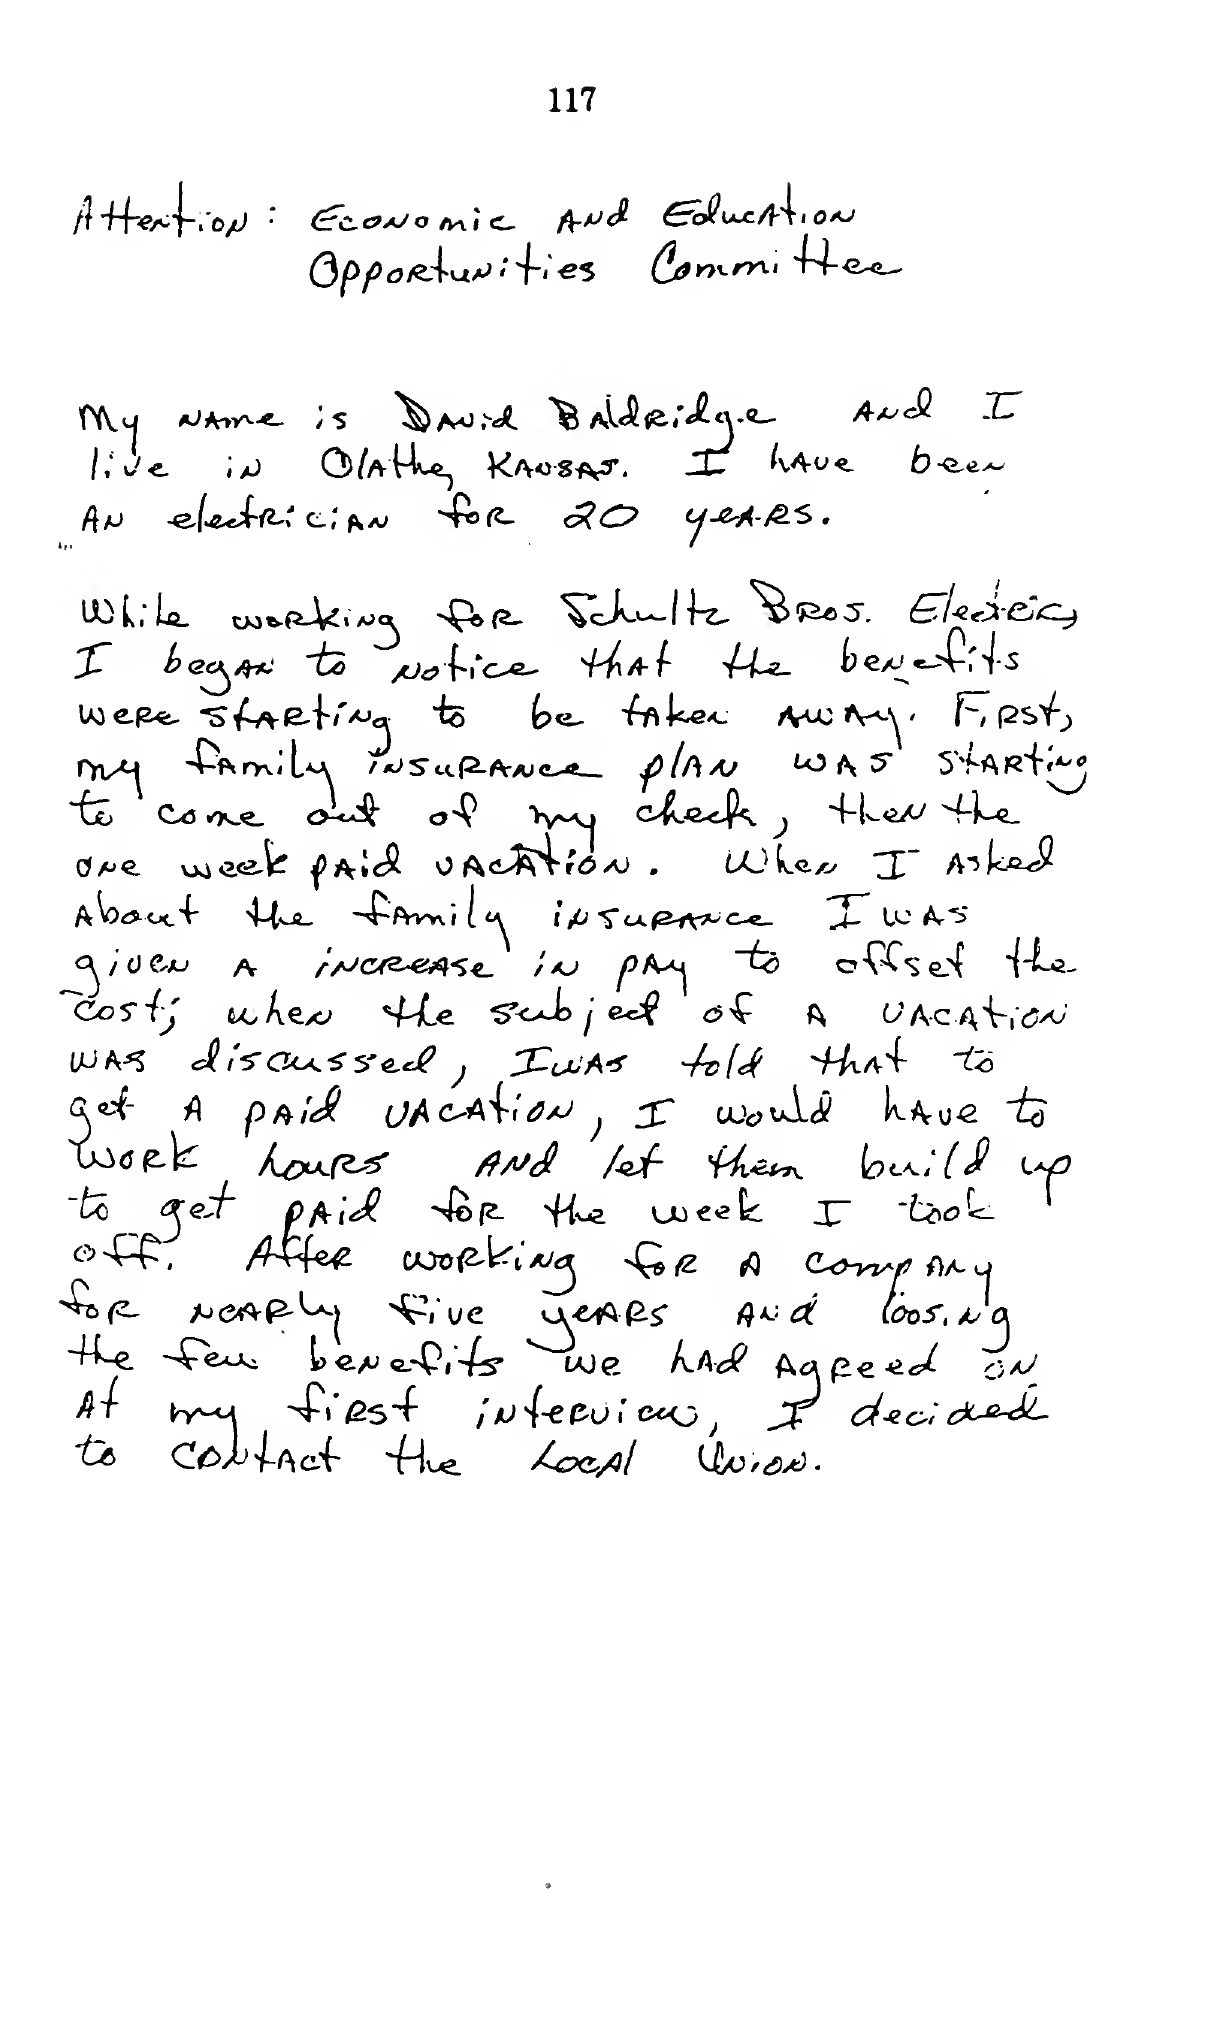 117
Attention: Economic and Education
Opportunities Committee
My name is David Baldridge and I
live in Olathe, Kansas. I have been
an electrician for 20 years.
While working for Schultz Bros. Electric,
I began to notice that the benefits
were starting to be taken away. First,
my family insurance plan was starting
to come out of my check, then the
one week paid vacation. When I asked
about the family insurance I was
given a increase in pay to offset the
cost; when the subject of a vacation
was discussed, I was told that to
get a paid vacation, I would have to
work hours and let them build up
to get paid for the week I took
off. After working for a company
for nearly five years and loosing
the few benefits we had agreed on
at my first interview, I decided
to contact the Local Union.